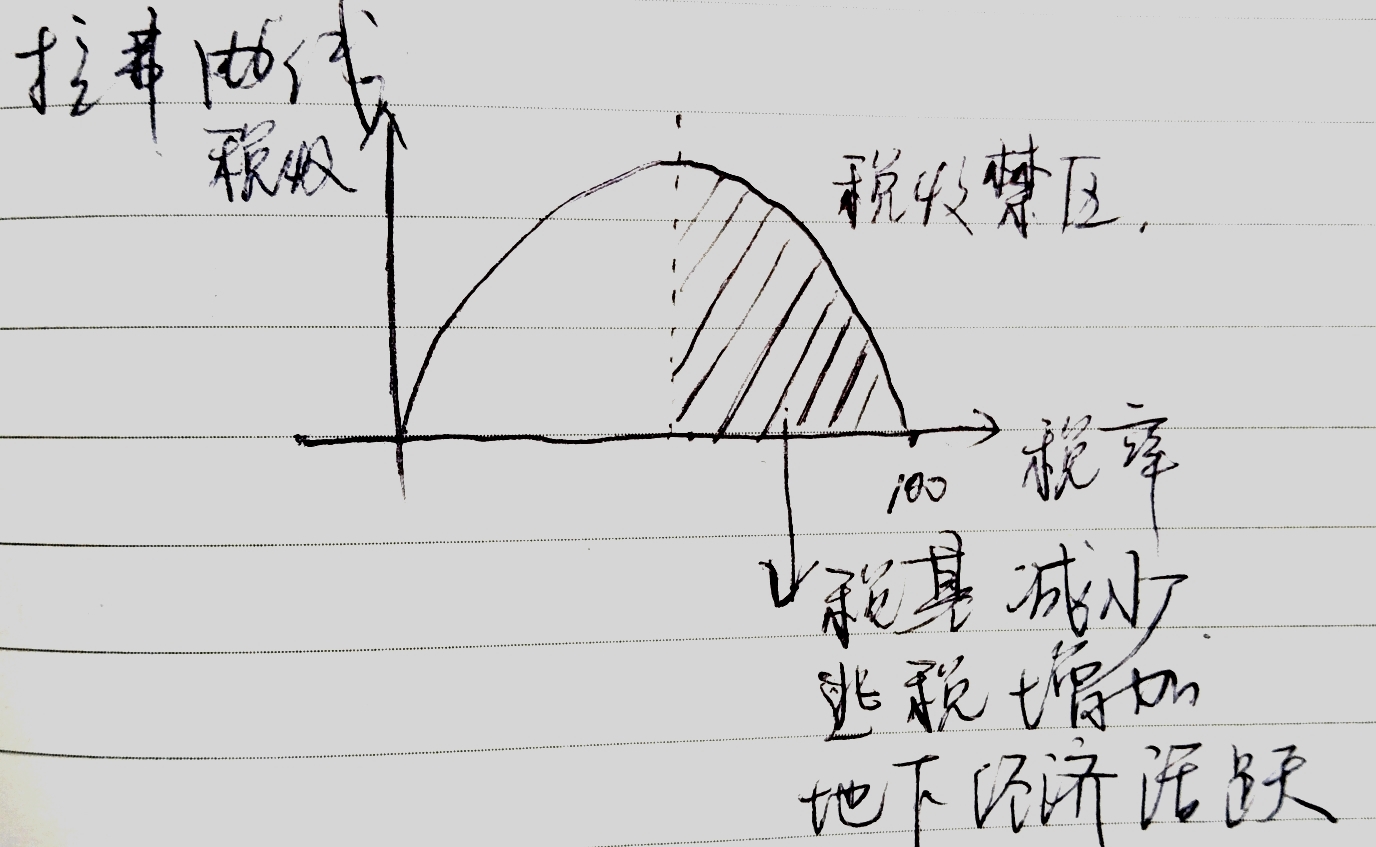 拉弗曲线
税收
税收禁区.
100
税率
税基减少
逃税增加
地下经济活跃